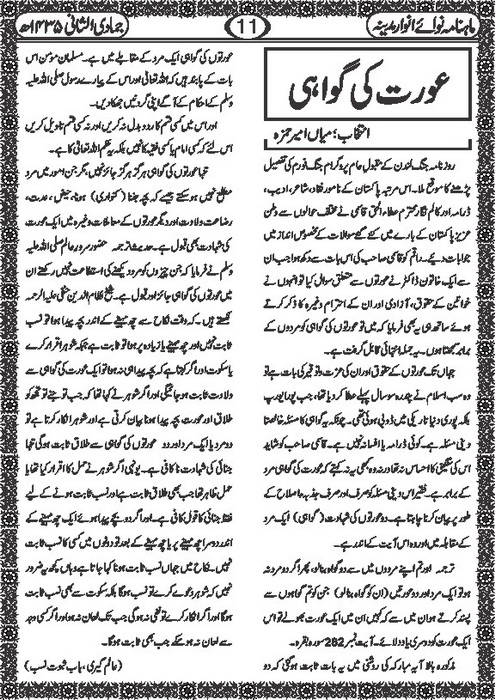 ماہنامہ نوائے انوار مدینہ
11
جمادی الثانی ۱۴۳۵ھ
عورت کی گواہی
انتخاب؛ میاں امیر حمزہ
روزنامہ جنگ لندن کے مقبول عام پروگرام جنگ فورم کی تفصیل
پڑھنے کا موقع ملا۔ اس مرتبہ پاکستان کے نامور نقاد، شاعر، ادیب،
ڈرامہ اور کالم نگار محترم عطاء الحق قاسمی نے مختلف حوالوں سے وطن
عزیز پاکستان کے بارے میں کئے گئے سوالات کے مخصوص انداز میں
جوابات دیئے۔ راقم کو قاسمی صاحب کی اس بات سے دکھ ہوا جب ان
سے ایک خاتون ڈاکٹر نے عورتوں سے متعلق سوال کیا تو انہوں نے
خواتین کے حقوق، آزادی اور ان کے احترام وغیرہ کا ذکر کرتے
ہوئے ساتھ ہی یہ بھی فرمایا کہ میں تو عورتوں کی گواہی کو مردوں کے
برابر سمجھتا ہوں۔ یہ جملہ انتہائی قابل گرفت ہے۔
جہاں تک عورتوں کے حقوق اور ان کی عزت و توقیر کی بات ہے تو
وہ سب اسلام نے پندرہ سو سال پہلے عطا کر دیا تھا، جب پورا یورپ
بلکہ پوری دنیا تاریکی میں ڈوبی ہوئی تھی۔ چونکہ یہ گواہی کا مسئلہ خالصتا
دینی مسئلہ ہے۔ کوئی ڈرامہ یا افسانہ نہیں ہے۔ قاسمی صاحب کو شاید
اس کی سنگینی کا احساس نہ تھا ورنہ وہ کبھی یہ نہ کہتے کہ عورت کی گواہی مرد
کے برابر ہے۔ فقیر اس دینی مسئلہ کو صرف اور صرف جذبہ اصلاح کے
طور پر بیان کرنا چاہتا ہے۔ دو عورتوں کی شہادت (گواہی) ایک مرد
کے مقابلہ میں اور وہ اس آیت کے اندر ہے۔
ترجمہ اور تم اپنے مردوں میں سے دو گواہ بنالو، پھر اگر دو مرد نہ
ہو تو ایک مرد اور دو عورتیں (ان کو گواہ بنالو) جن کو تم گواہوں سے
پسند کرتے ہو ان میں سے کہ کہیں ان میں ایک عورت بھولے تو اس
ایک عورت کو دوسری یاد دلائے۔ آیت نمبر 282 سورہ بقرہ۔
مذکورہ بالا آیہ مبارکہ کی روشنی میں یہ بات ثابت ہو گئی کہ دو
عورتوں کی گواہی ایک مرد کے مقابلے میں ہے۔ مسلمان مومن اس
بات کے پابند ہیں کہ اللہ تعالیٰ اور اس کے پیارے رسول صلی اللہ علیہ
وسلم کے احکام کے آگے اپنی گردنیں جھکا دیں۔
اور اس میں کسی قسم کا ردو بدل نہ کریں اور نہ کسی قسم تاویل کریں
اس لئے کہ کسی امام یا کسی فقیہ کا نہیں بلکہ یہ حکم اللہ تعالیٰ کا ہے۔
تنہا عورتوں کی گواہی ہرگز ہرگز جائز نہیں مگر جن امور میں مرد
مطلع نہیں ہو سکتے جیسے کہ بچہ جننا (کنواری) ہونا، حیض، عدت،
رضاعت ولادت اور دیگر عورتوں کے معاملات وغیرہ میں ایک عورت
کی شہادت بھی قبول ہے۔ حدیث: ترجمہ حضور سرور عالم صلی اللہ علیہ
وسلم نے فرمایا کہ جن چیزوں کو مرد دیکھنے کی استطاعت نہیں رکھتے ان
میں عورتوں کی گواہی جائز اور قبول ہے۔ شیخ نظام الدین حنفی علیہ الرحمہ
لکھتے ہیں۔ کہ وقت نکاح سے چھ مہینے کے اندر بچہ پیدا ہوا تو نسب
ثابت نہیں اور چھ مہینے یا زیادہ پر ہوا تو ثابت ہے جبکہ شوہر اقرار کرے
یا سکوت اور اگر کہتا ہے کہ بچہ پیدا ہی نہ ہوا تو ایک عورت کی گواہی سے
ولادت ثابت ہو جائیگی اور اگر شوہر نے کہا تھا کہ جب تو جنے تو تجھ کو
طلاق اور عورت بچہ پیدا ہونا بیان کرتی ہے اور شوہر انکار کرتا ہے تو
دو مرد یا ایک مرد اور دو عورتوں کی گواہی سے طلاق ثابت ہو گی تنہا
جنائی کی شہادت ناکافی ہے۔ یونہی اگر شوہر نے حمل کا اقرار کیا تھا یا
حمل ظاہر تھا جب بھی طلاق ثابت ہے اور نسب ثابت ہونے کے لیے
فقط جنائی کا قول کافی ہے۔ اور اگر دو بچے پیدا ہوئے ایک چھ مہینے کے
اندر دوسرا چھ مہینے پر یا چھ مہینے کے بعد تو دونوں میں کسی کا نسب ثابت
نہیں۔ نکاح میں جہاں نسب ثابت ہونا کہا جاتا ہے وہاں کچھ یہ ضرور
نہیں کہ شوہر دعوے کرے تو نسب ہو گا بلکہ سکوت سے بھی نسب ثابت
ہو گا اور اگر انکار کرے تو نفی نہ ہو گی جب تک لعان نہ ہو اور اگر کسی وجہ
سے لعان نہ ہو سکے جب بھی ثابت ہو گا۔
(عالم گیری، باب ثبوت نسب)